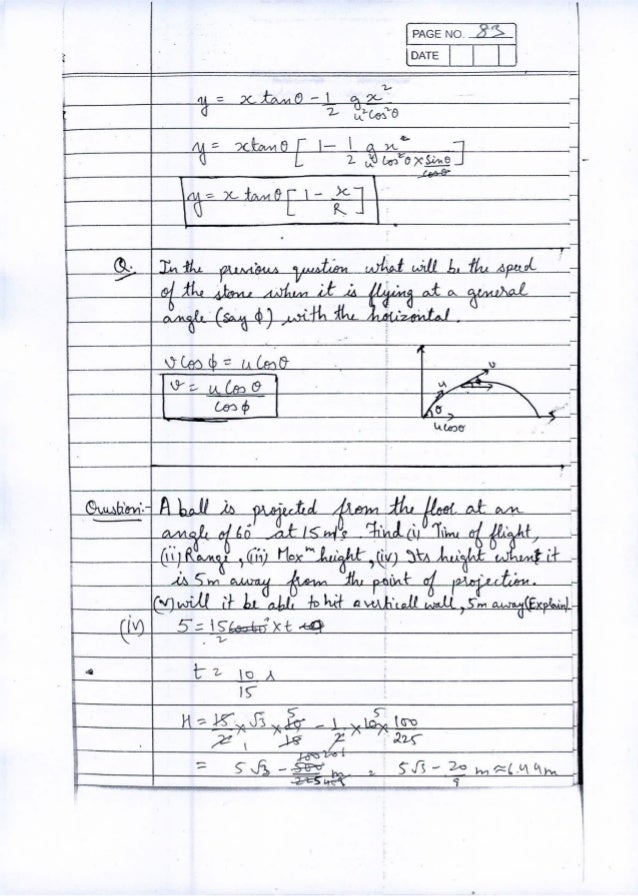 PAGE NO. 83
DATE
y = x tanθ - 1/2 gx²/u²cos²θ
y = xtanθ [ 1 - 1/2 gx²/u²cos²θ × sinθ/cosθ ]
y = x tanθ [ 1 - x/R ]
Q. In the previous question what will be the speed
of the stone when it is flying at a general
angle (say ϕ) with the horizontal.
v cosϕ = u cosθ
v = u cosθ / cosϕ
v
u
θ
u cosθ
Question:- A ball is projected from the floor at an
angle of 60° at 15 m/s. Find (i) Time of flight,
(ii) Range, (iii) Maxᵐ height, (iv) Its height when it
is 5m away from the point of projection.
(v) will it be able to hit a verticall wall, 5m away (Explain)
(iv) 5 = 15/2 × t
t = 10/15 s
H = 15/2 × √3 × 10/15 - 1/2 × 10 × 100/225
= 5√3 - = 5√3 - 20/9 m ≈ 6.44m